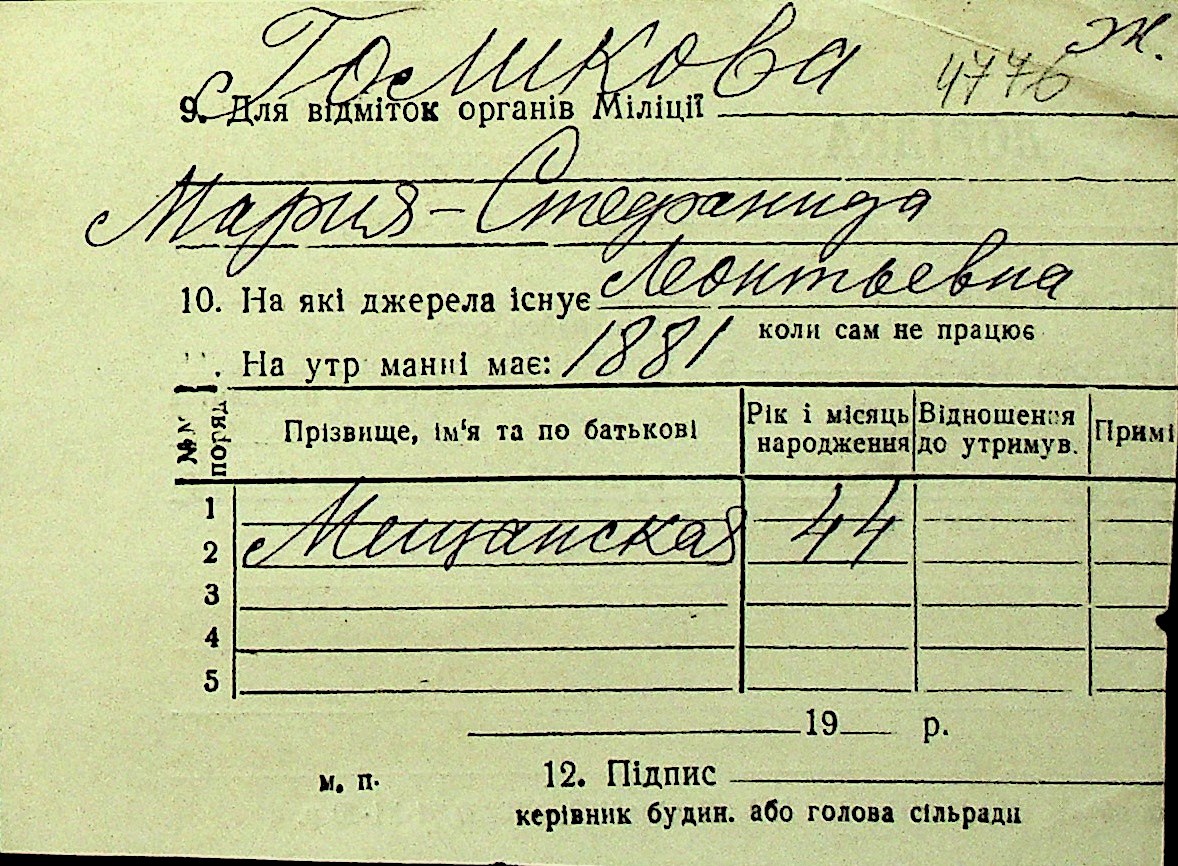 Голикова ж.
4776
9. Для відміток органів Міліції
Мария-Стефанида
Леонтьевна
10. На які джерела існує
коли сам не працює
. На утр манні має: 1881
№№ поряд
Прізвище, ім'я та по батькові
Рік і місяць народження
Відношення до утримув.
Примі
1
2 Мещанская 44
3
4
5
19 р.
м. п.
12. Підпис
керівник будин. або голова сільради